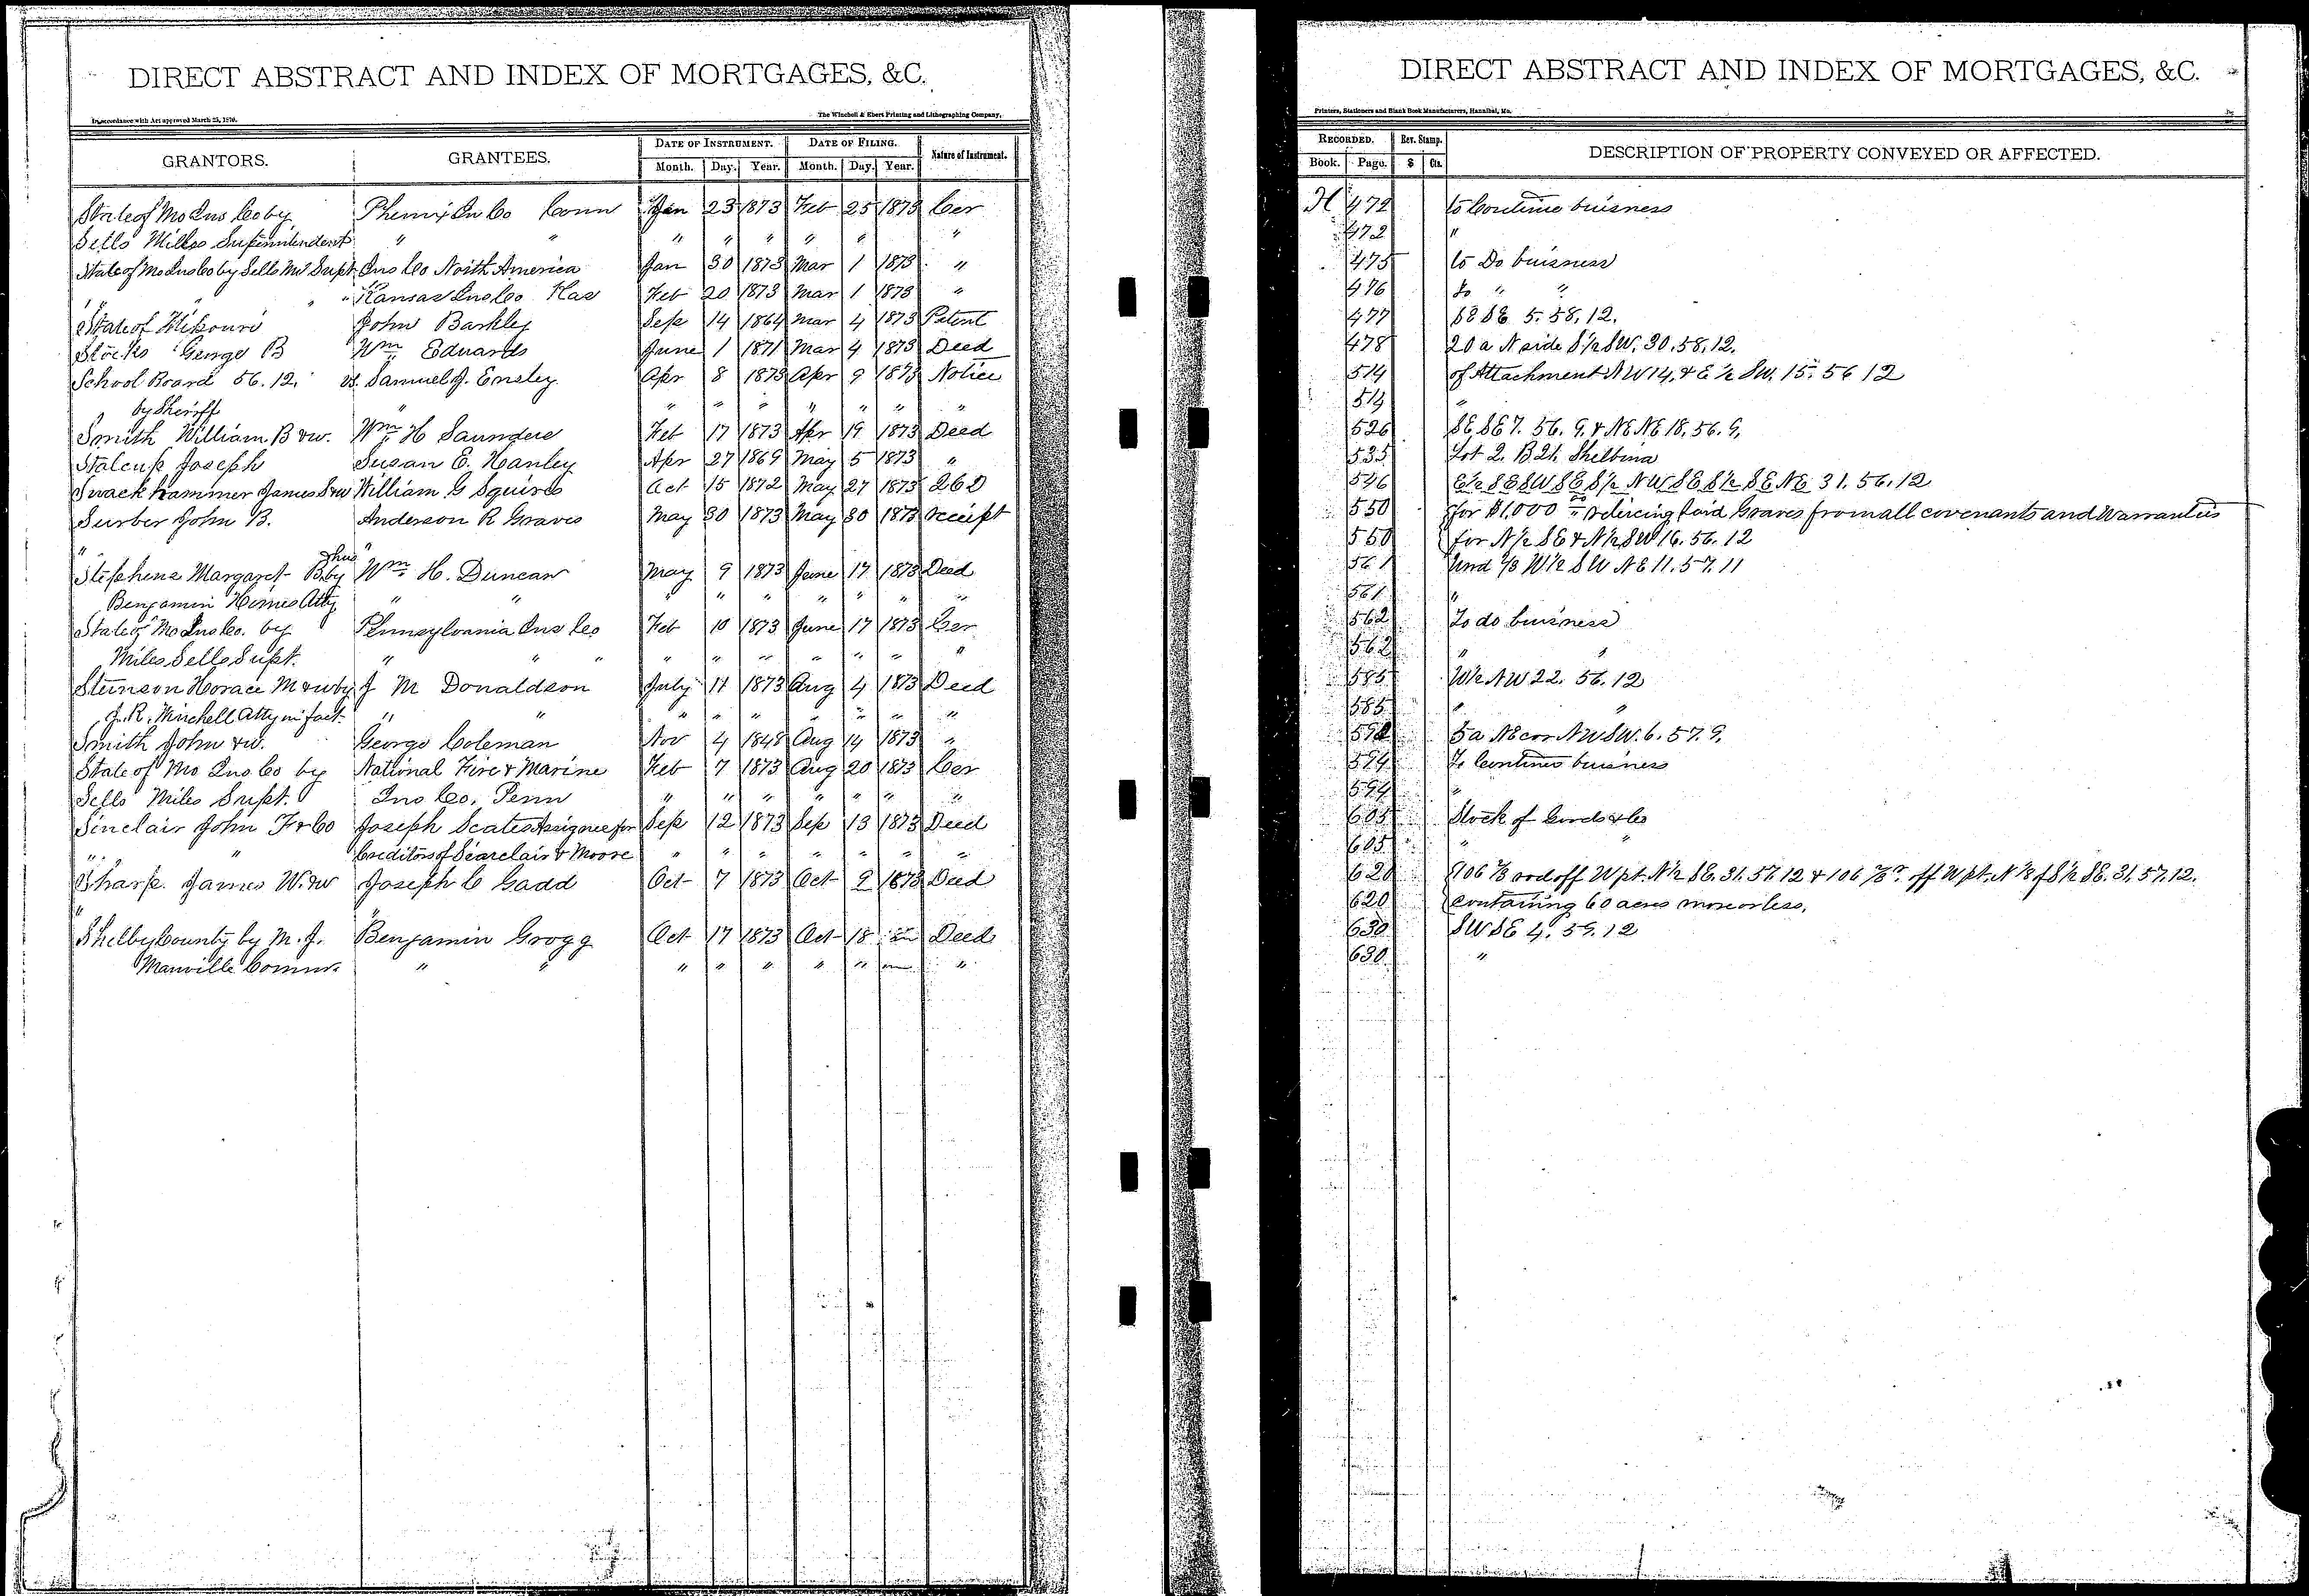 DIRECT ABSTRACT AND INDEX OF MORTGAGES, &C.
In accordance with Act approved March 25, 1870.
The Winchell & Ebert Printing and Lithographing Company,
GRANTORS. GRANTEES. DATE OF INSTRUMENT. DATE OF FILING. Nature of Instrument.
Month. Day. Year. Month. Day. Year.
State of Mo Ins Co by Phenix In Co Conn Jan 23 1873 Feb 25 1873 Cer
Sells Miles Superintendent " " " " " " " "
State of Mo Ins Co by Sells M Supt Ins Co North America Jan 30 1873 Mar 1 1873 "
" " " " Kansas Ins Co Kas Feb 20 1873 Mar 1 1873 "
State of Missouri John Barkley Sep 14 1864 Mar 4 1873 Patent
Stocks George B Wm Eduards June 1 1871 Mar 4 1873 Deed
School Board 56.12. vs. Samuel J. Ensley Apr 8 1873 Apr 9 1873 Notice
by Sheriff " " " " " " " "
Smith William B & w. Wm H Saunders Feb 17 1873 Apr 19 1873 Deed
Stalcup Joseph Susan E. Hanley Apr 27 1869 May 5 1873 "
Swackhammer James S & w William G Squires Oct 15 1872 May 27 1873
Surber John B. Anderson R Graves May 30 1873 May 30 1873 receipt
"
Stephens Margaret B by Wm H. Duncan May 9 1873 June 17 1873 Deed
Benjamin Atty " " " " " " " " "
State of Mo Ins Co. by Pennsylvania Ins Co Feb 10 1873 June 17 1873 Cer
Miles Sells Supt. " " " " " " " " " "
Stinson Horace M & w by J M Donaldson July 11 1873 Aug 4 1873 Deed
J. R. Atty in fact. " " " " " " " " "
Smith John & w. George Coleman Nov 4 1848 Aug 14 1873 "
State of Mo Ins Co by National Fire & Marine Feb 7 1873 Aug 20 1873 Cer
Sells Miles Supt. Ins Co. Penn " " " " " " "
Sinclair John F & Co Joseph Scates Assignee for Sep 12 1873 Sep 13 1873 Deed
" " Creditors of Sinclair & Moore " " " " " " "
Sharp James W. & w Joseph C Gadd Oct 7 1873 Oct 9 1873 Deed
" "
Shelby County by M. J. Benjamin Grogg Oct 17 1873 Oct 18 " Deed
Manville Commr. " " " " " " " "
DIRECT ABSTRACT AND INDEX OF MORTGAGES, &C.
Printers, Stationers and Blank Book Manufacturers, Hannibal, Mo.
RECORDED. Rev. Stamp. DESCRIPTION OF PROPERTY CONVEYED OR AFFECTED.
Book. Page. $ Cts.
H 472 to Continue buisness
472 "
475 to Do buisness
476 to " "
477 SE SE 5.58.12.
478 20 a N side S 1/2 SW. 30.58.12.
514 of Attachment NW 14. & E 1/2 SW. 15. 56 12
514 "
526 SE SE 7. 56. 9. & NE NE 18. 56. 9.
535 Lot 2. B 21. Shelbina
546 E 1/2 SE SW SE S 1/2 NW SE S 1/2 SE NE 31. 56. 12
550 for $1,000 releicing said Graves from all covenants and Warranties
550 for N 1/2 SE & N 1/2 SW 16. 56. 12
561 Und 1/3 W 1/2 SW NE 11. 57. 11
561 "
562 To do buisness
562 " "
585 W 1/2 NW 22. 56. 12
585 " "
592 5 a NE cor NW SW. 6. 57. 9.
594 To Continue buisness
594 "
605 Stock of Goods &c
605 " "
620 106 2/3 rod off W pt. N 1/2 SE. 31. 57. 12 & 106 2/3 r. off W pt. N 1/2 of S 1/2 SE. 31. 57. 12.
620 Containing 60 acres more or less.
630 SW SE 4. 59. 12
630 "